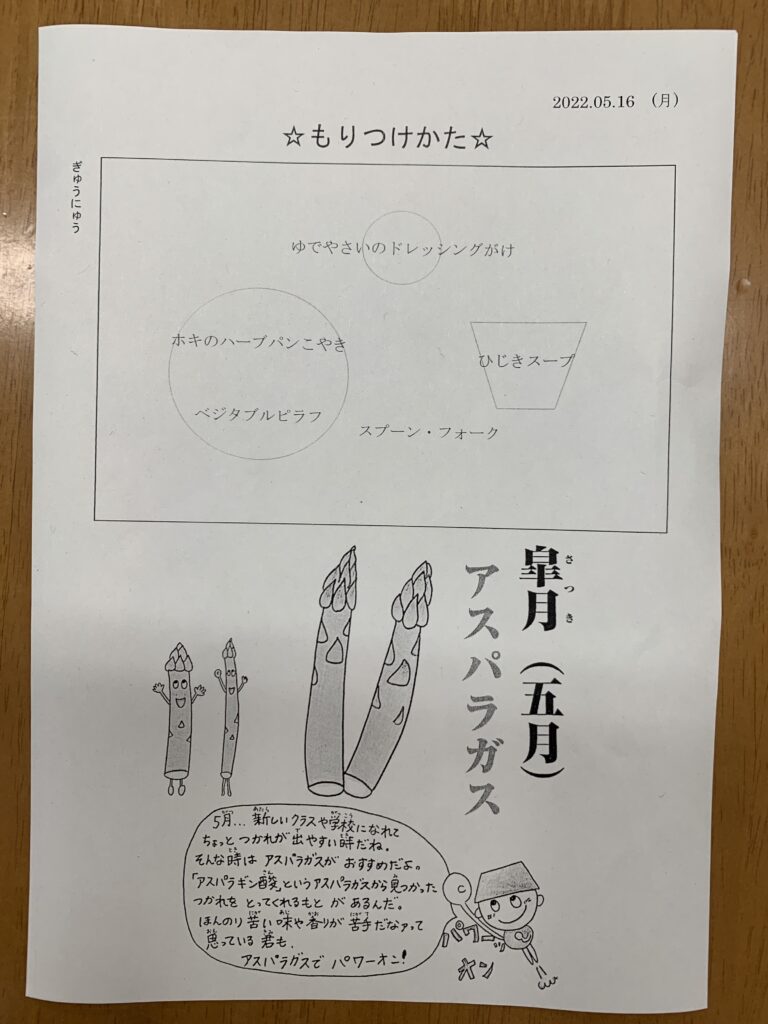 2022.05.16 (月)
☆もりつけかた☆
ぎゅうにゅう
ゆでやさいのドレッシングがけ
ホキのハーブパンこやき
ひじきスープ
ベジタブルピラフ
スプーン・フォーク
皐月(五月)
さつき
アスパラガス
5月…新しいクラスや学校になれて
ちょっとつかれが出やすい時だね。
そんな時はアスパラガスがおすすめだよ。
「アスパラギン酸」というアスパラガスから見つかった
つかれをとってくれるもとがあるんだ。
ほんのり苦い味や香りが苦手だなァって
思っている君も、
アスパラガスでパワーオン!
パワーッ
オン